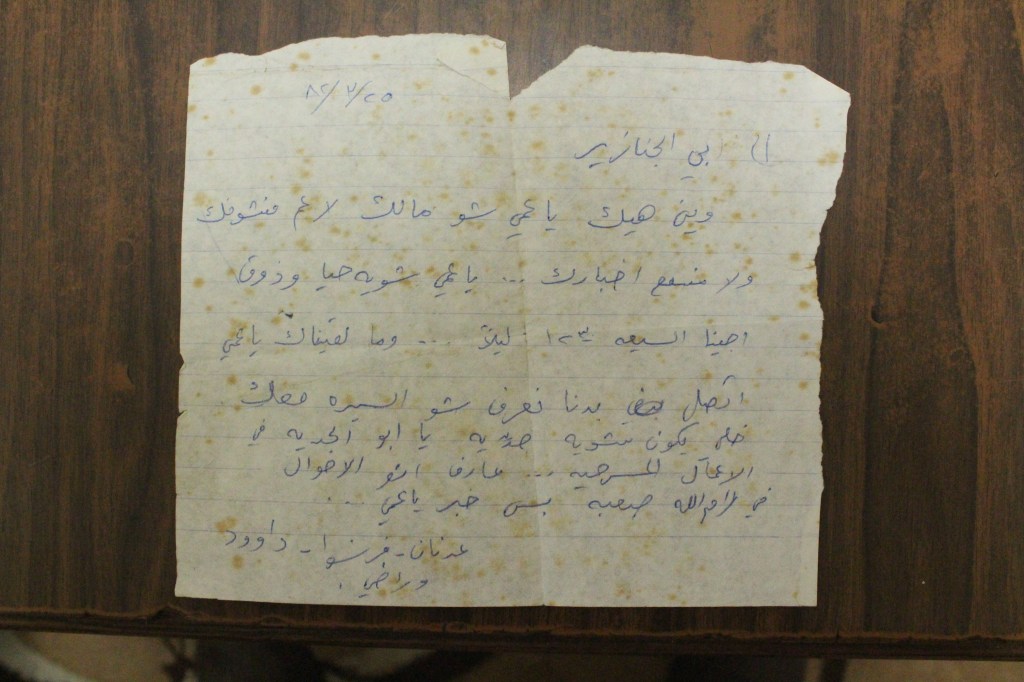 ٨٢/٣/٢٥
الى ابي الجنازير
وين هيك يا عمي شو مالك لا عم منشوفك
ولا منسمع اخبارك ... يا عمي شويه حيا وذوق
اجينا السيعه ١٢٣٠ ليلاً ... وما لقيناك يا عمي
اتصل بدنا نعرف شو السيره معك
خلي يكون شويه جديه يا ابو الجديه في
الاعمال المسرحيه ... عارف انو الاحوال
في رام الله صعبه بس خبر يا عمي ...
عدنان - فرنسوا - داوود
وراضي.